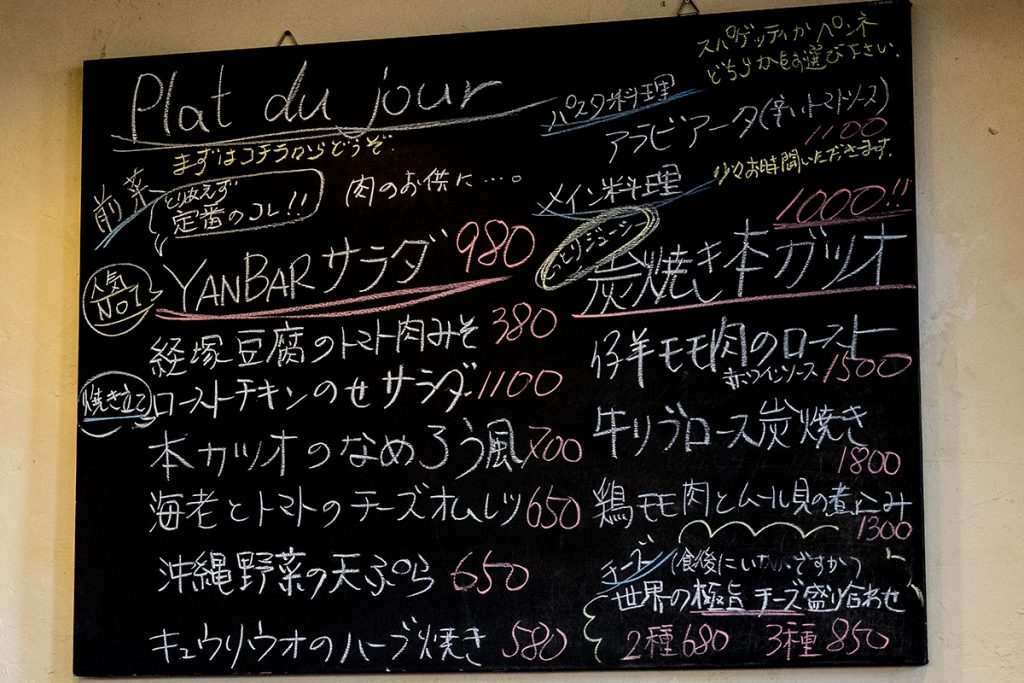 Plat du jour
まずはコチラからどうぞ。
前菜
とりあえず
定番のコレ!!
肉のお供に…。
人気
NO1
YANBARサラダ 980
経塚豆腐のトマト肉みそ 380
焼き立て
ローストチキンのせサラダ 1100
本カツオのなめろう風 700
海老とトマトのチーズオムレツ 650
沖縄野菜の天ぷら 650
キュウリウオのハーブ焼き 580
スパゲッティかペンネ
どちらかをお選び下さい。
パスタ料理
アラビアータ(辛いトマトソース)
1100
少々お時間いただきます。
メイン料理
1000!!
炭焼き本ガツオ
仔羊モモ肉のロースト
赤ワインソース 1500
牛リブロース炭焼き
1800
鶏モモ肉とムール貝の煮込み
1300
チーズ (食後にいかがですか?
世界の極旨チーズ盛り合わせ
2種680 3種850